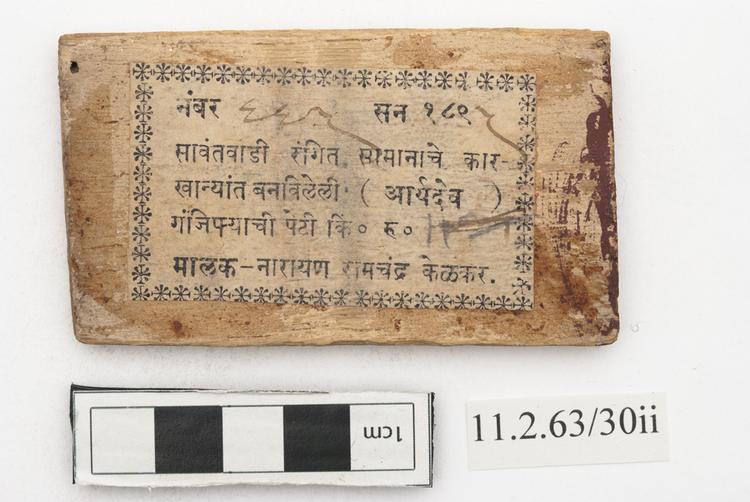 नंबर ६६२ सन १८९
सावंतवाडी रंगित सामानाचे कार-
खान्यांत बनविलेली ( आर्यदेव )
गंजिफ्याची पेटी किं० रु०
मालक - नारायण रामचंद्र केळकर.
1cm
11.2.63/30ii